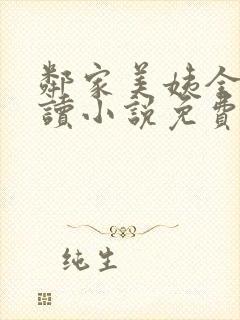 鄰家美姨全
讀小說免費
纯生